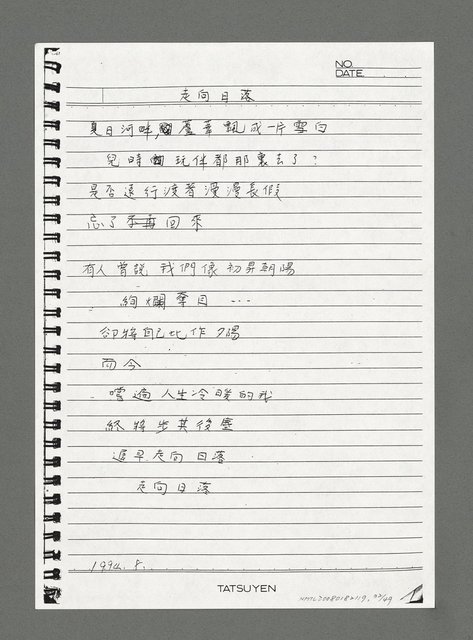 NO.
DATE.
走向日落
夏日河畔,蘆葦飄成一片雪白
兒時玩伴都那裏去了?
是否遠行渡著漫漫長假
忘了回來
有人曾說 我們像初昇朝陽
絢爛奪目 ⋯
卻將自己比作夕陽
而今
嚐遍人生冷暖的我
終將步其後塵
遲早走向日落
走向日落
1994.8.
TATSUYEN